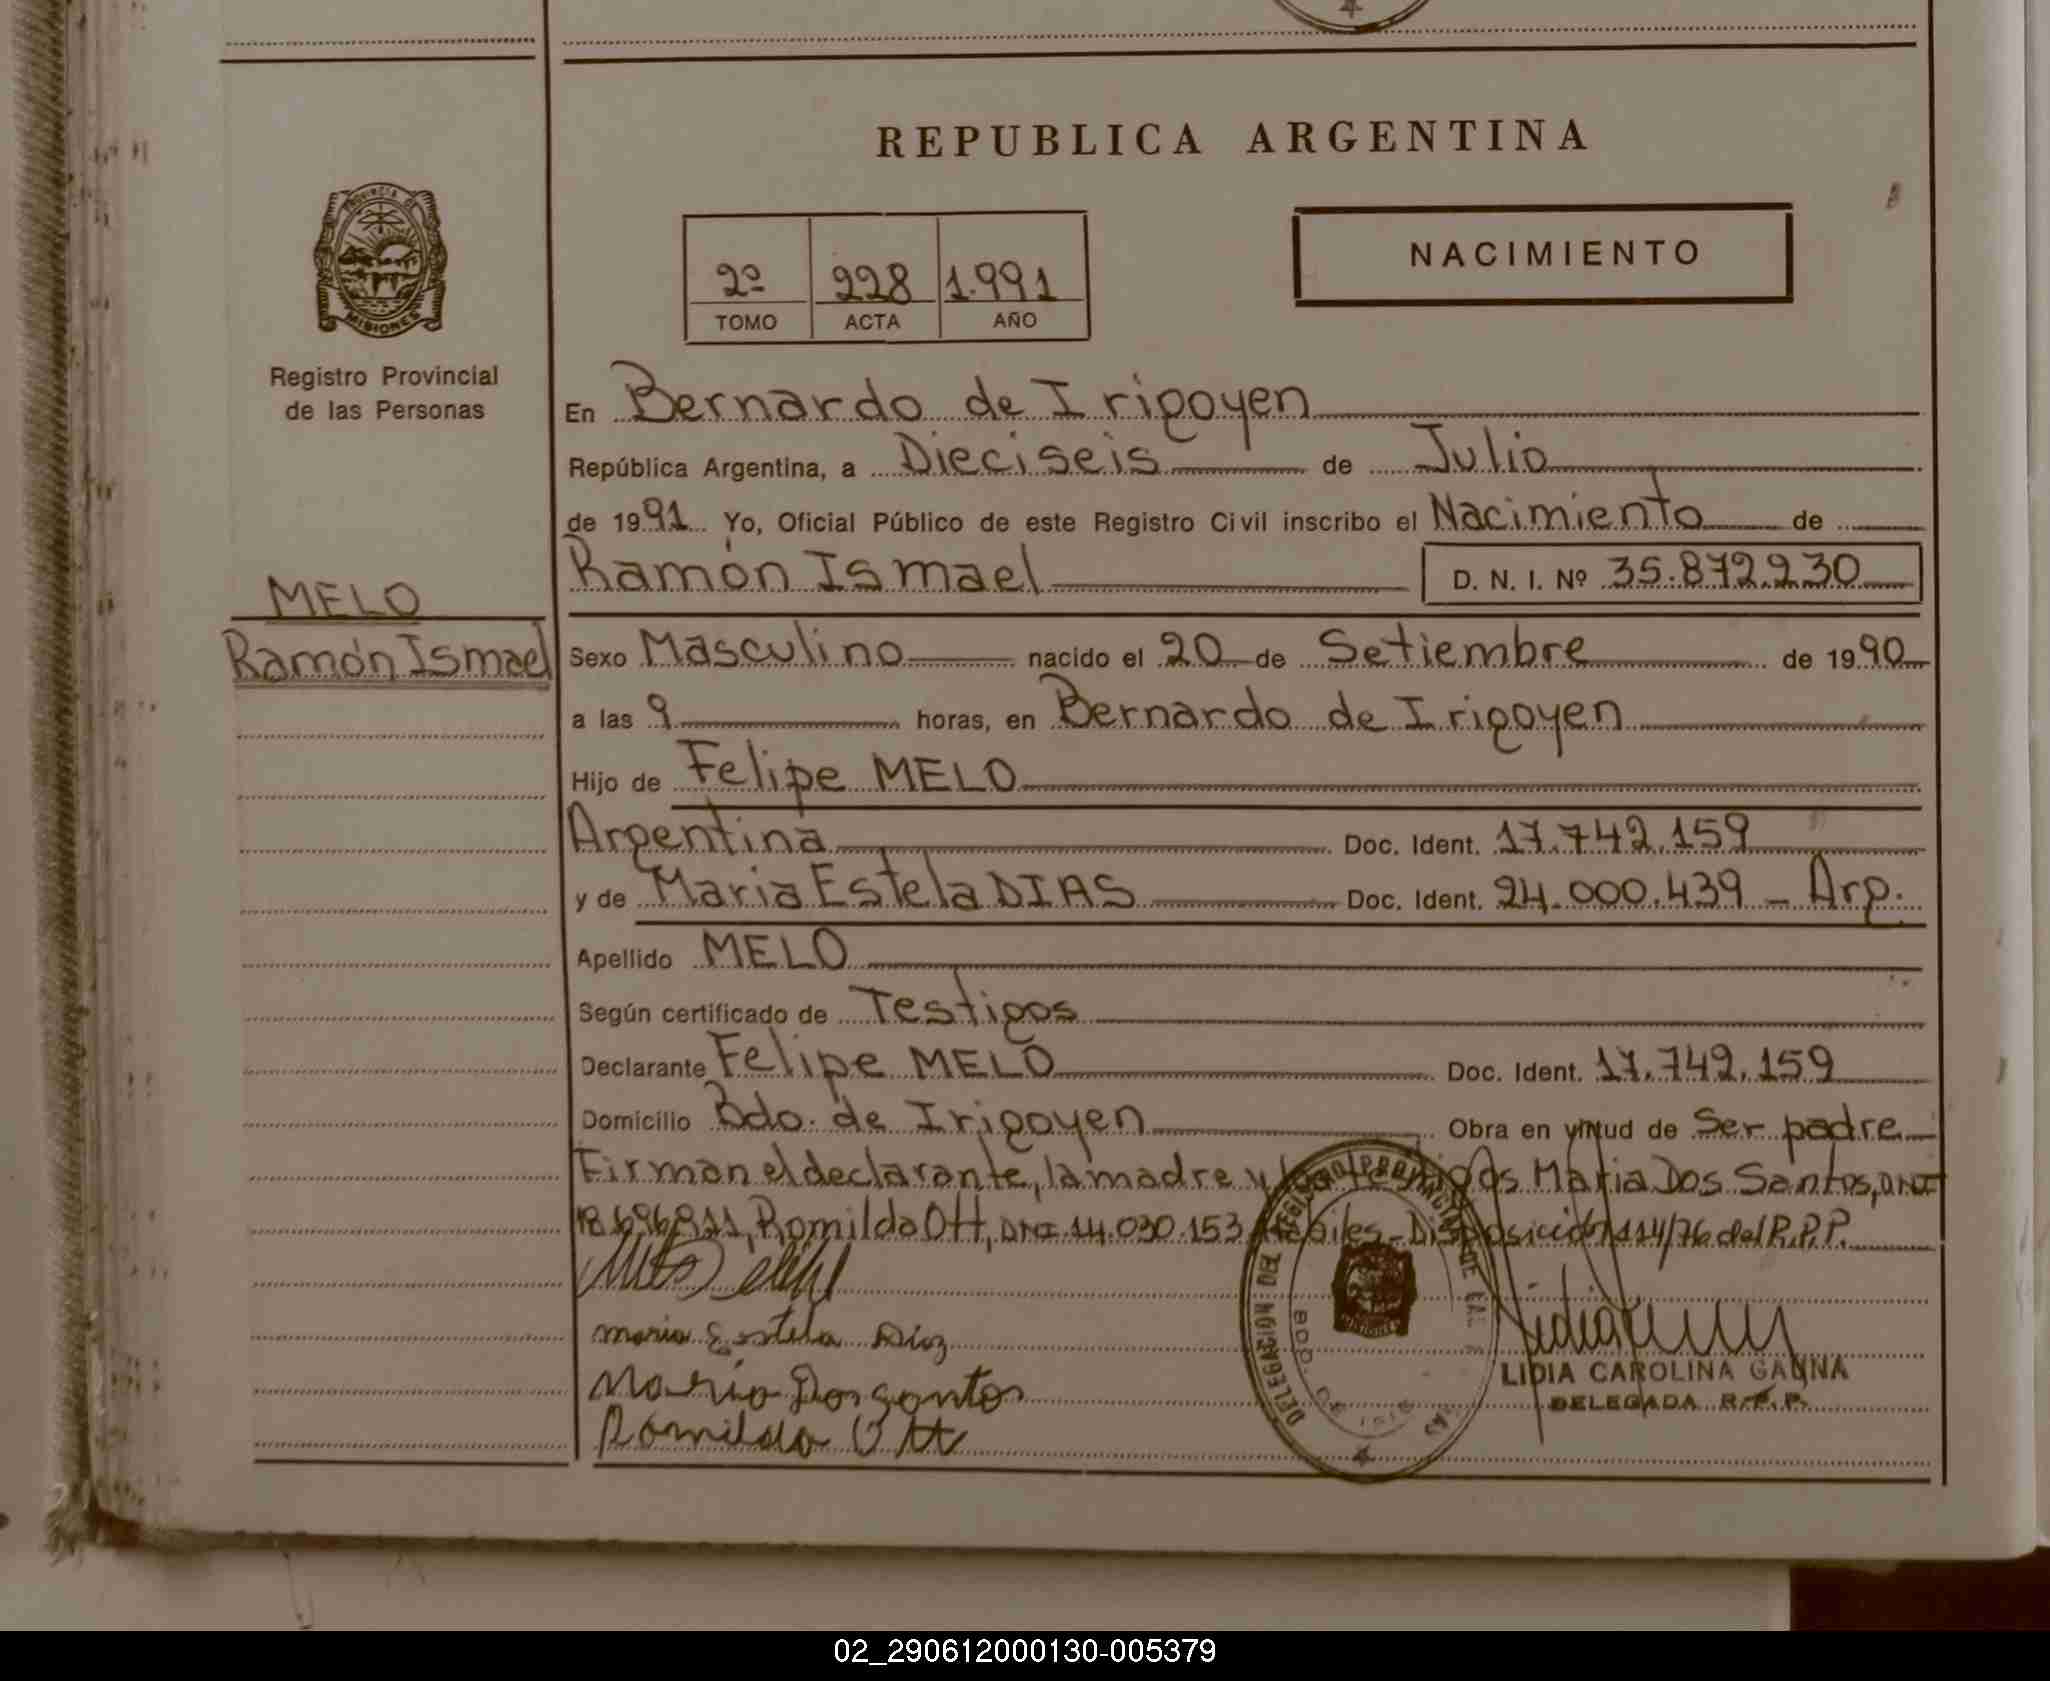 REPUBLICA ARGENTINA
PROVINCIA DE
MISIONES
Registro Provincial
de las Personas
2º 228 1.991
TOMO ACTA AÑO
NACIMIENTO
En Bernardo de Irigoyen
República Argentina, a Dieciseis de Julio
de 1991 Yo, Oficial Público de este Registro Civil inscribo el Nacimiento de
Ramón Ismael D. N. I. Nº 35.872.230
MELO
Ramón Ismael
Sexo Masculino nacido el 20 de Setiembre de 1990
a las 9 horas, en Bernardo de Irigoyen
Hijo de Felipe MELO
Argentina Doc. Ident. 17.742.159
y de Maria Estela DIAS Doc. Ident. 24.000.439 - Arg.
Apellido MELO
Según certificado de Testigos
Declarante Felipe MELO Doc. Ident. 17.742.159
Domicilio Bdo. de Irigoyen Obra en virtud de Ser padre
Firman el declarante, la madre y los testigos Maria Dos Santos, DNI
Romilda Ott, DNI 14.030.153 Habiles - Disposición 114/76 del R.P.P.
maria Estela Diaz
Maria Dos santos
Romilda Ott
LIDIA CAROLINA GAUNA
DELEGADA R.P.P.
02_290612000130-005379